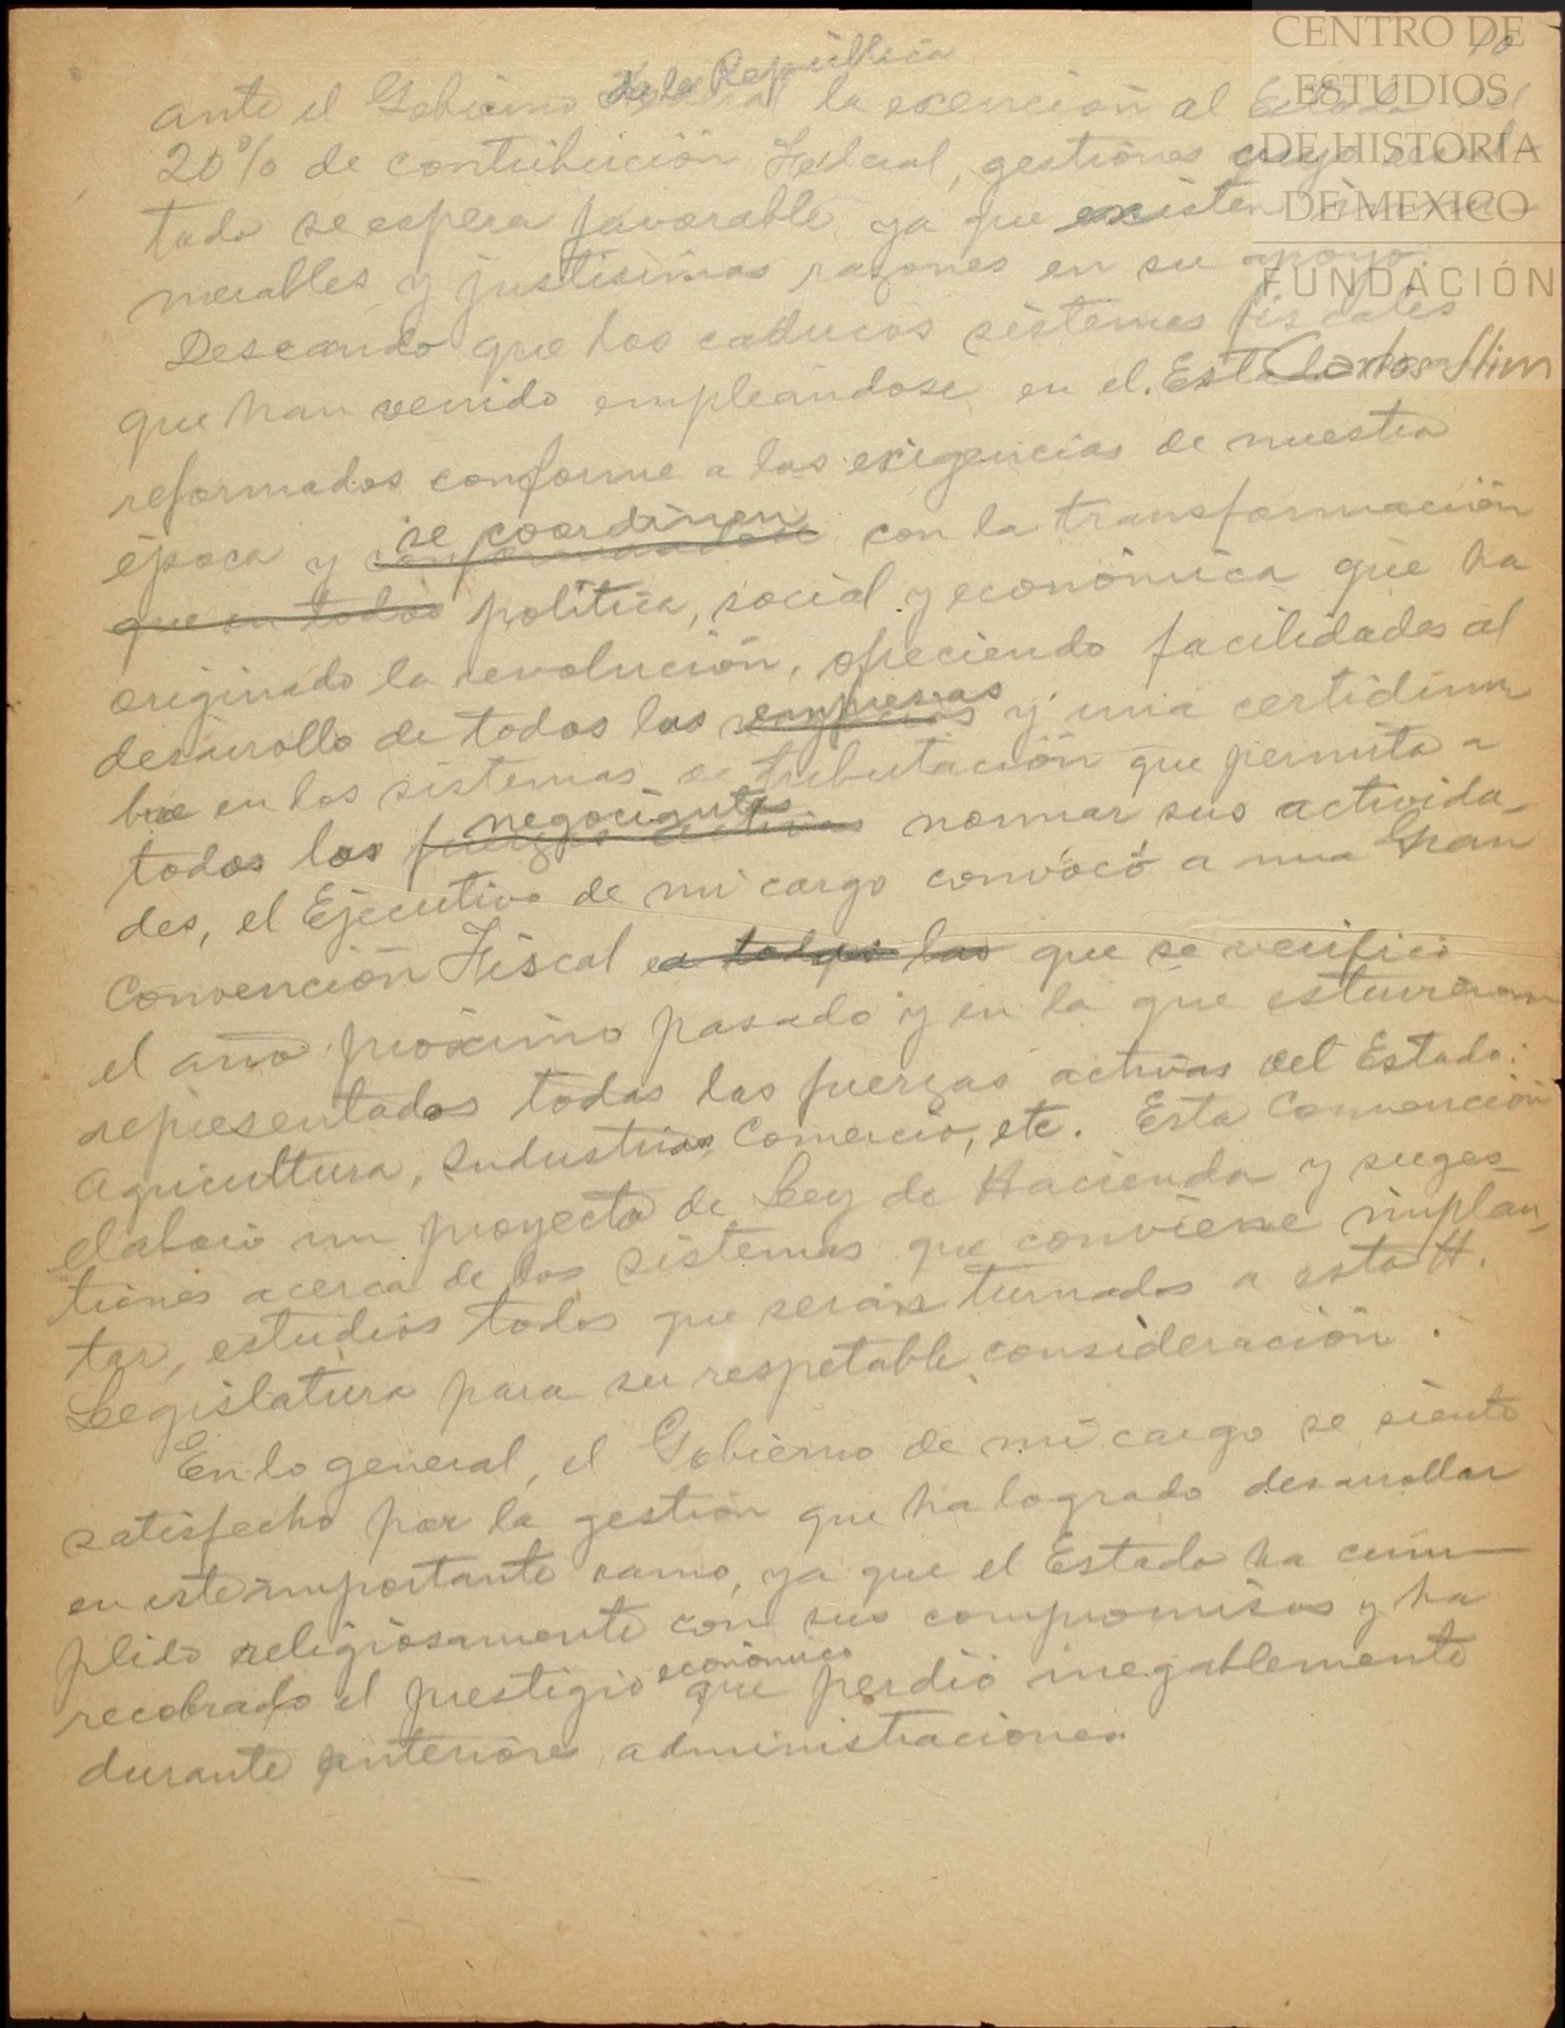 CENTRO DE
ESTUDIOS
DE HISTORIA
DE MEXICO
FUNDACIÓN
Carlos Slim
10
de la República
ante el Gobierno Federal la exención al Estado del
20% de contribución Federal, gestiones cuyo resul-
tado se espera favorable ya que existen innu-
merables y justísimas razones en su apoyo.
Deseando que los caducos sistemas fiscales
que han venido empleándose en el Estado
reformados conforme a las exigencias de nuestra
se coordinen
época y con la transformación
que en todos política, social y económica que ha
originado la revolución, ofreciendo facilidades al
empresas
desarrollo de todas las y una certidum
bre en los sistemas de tributación que permita a
negociantes
todos los fuerzas activas normar sus activida-
des, el Ejecutivo de mi cargo convocó a una Gran
Convención Fiscal a todas las que se verificó
el año próximo pasado y en la que estuvieron
representados todas las fuerzas activas del Estado:
Agricultura, Industrias, Comercio, etc. Esta Convención
elaboró un proyecto de Ley de Hacienda y suges-
tiones acerca de los sistemas que conviene implan-
tar, estudios todos que serán turnados a esta H.
Legislatura para su respetable consideración.
En lo general, el Gobierno de mi cargo se siente
satisfecho por la gestión que ha logrado desarrollar
en este importante ramo, ya que el Estado ha cum-
plido religiosamente con sus compromisos y ha
económico
recobrado el prestigio que perdió inegablemente
durante anteriores administraciones.